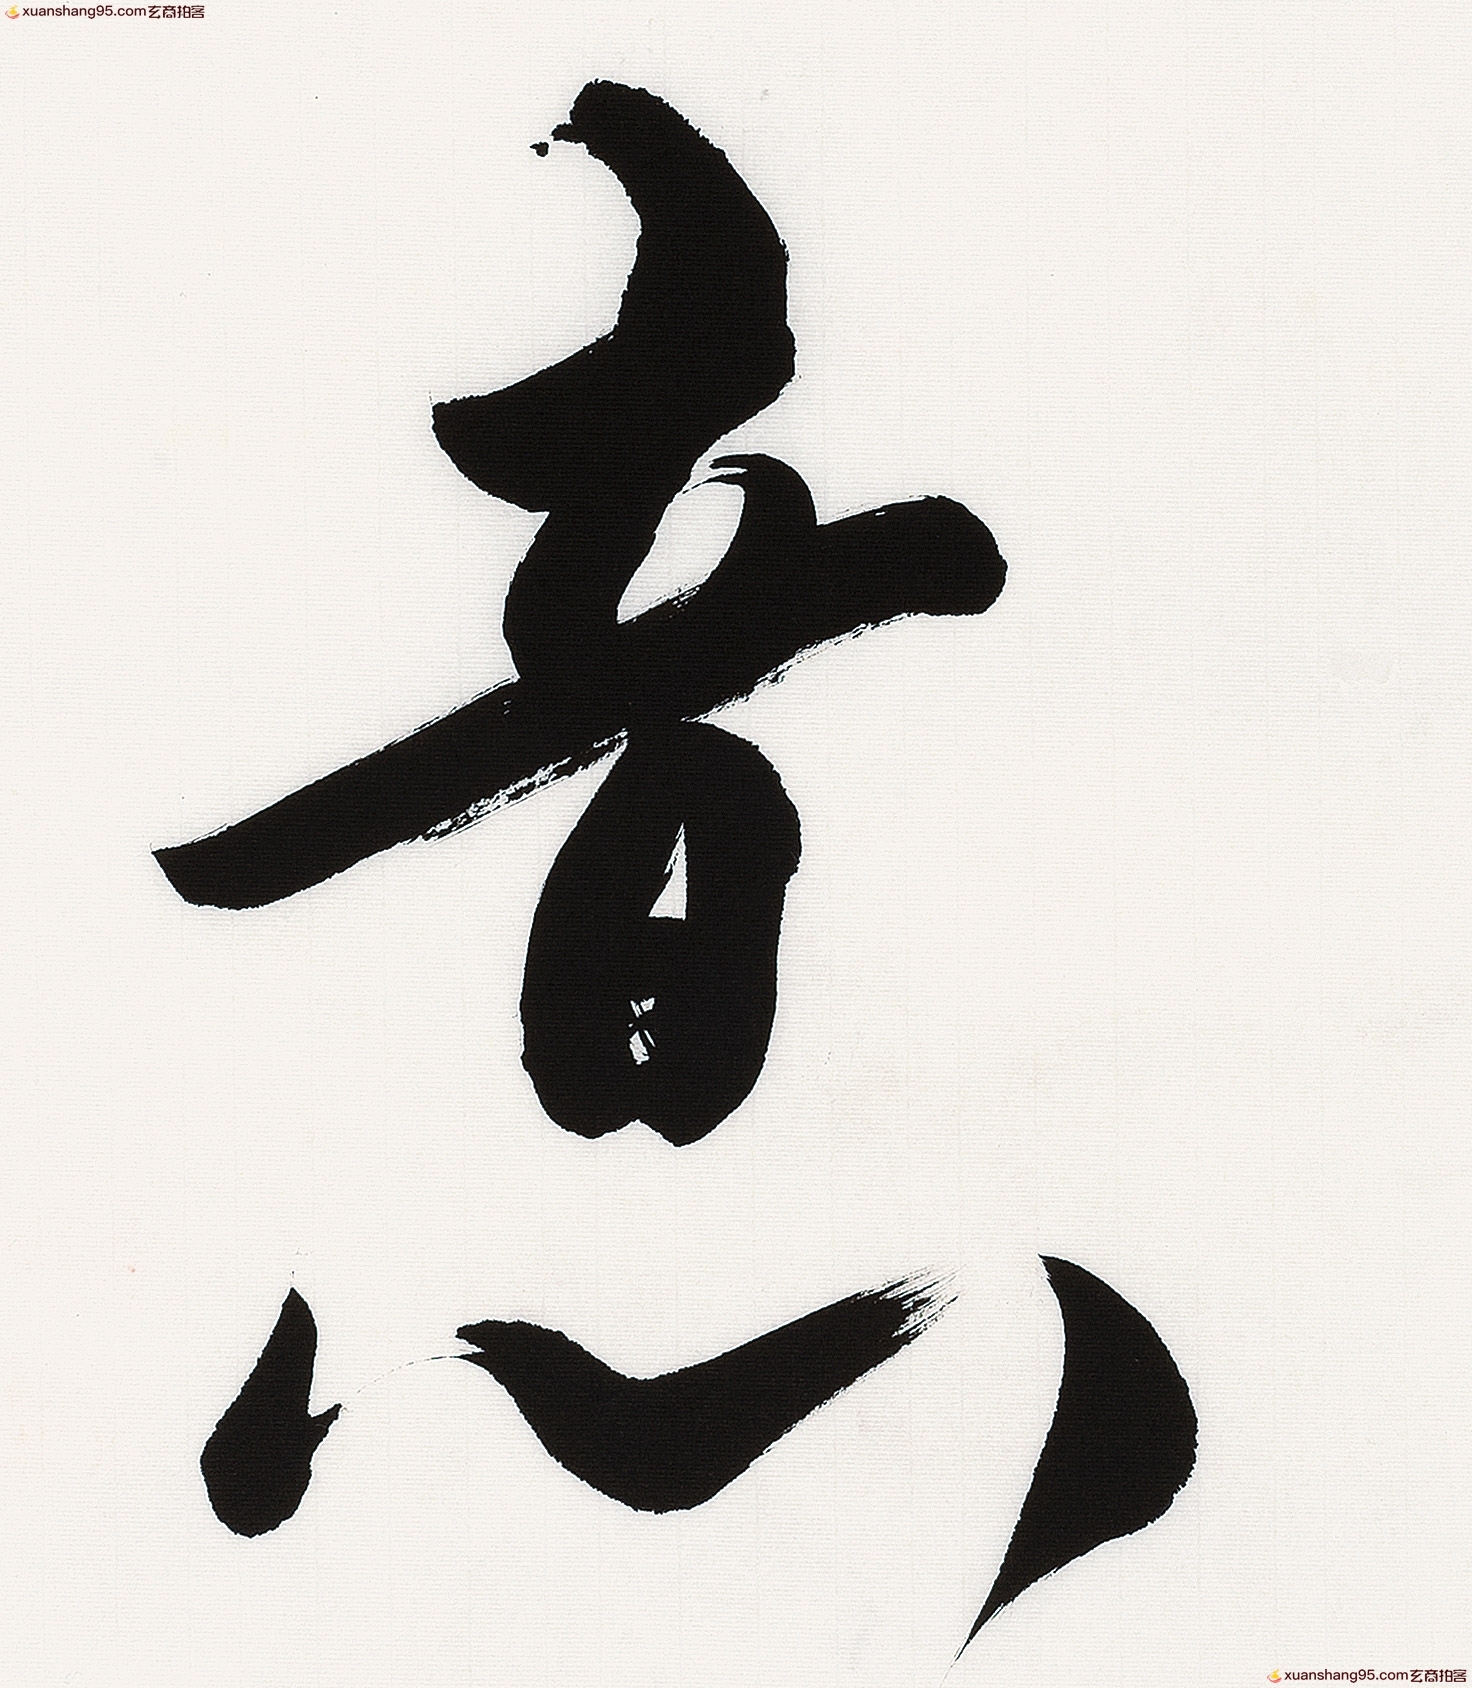 xuanshang95.com玄商拍客
意
xuanshang95.com玄商拍客